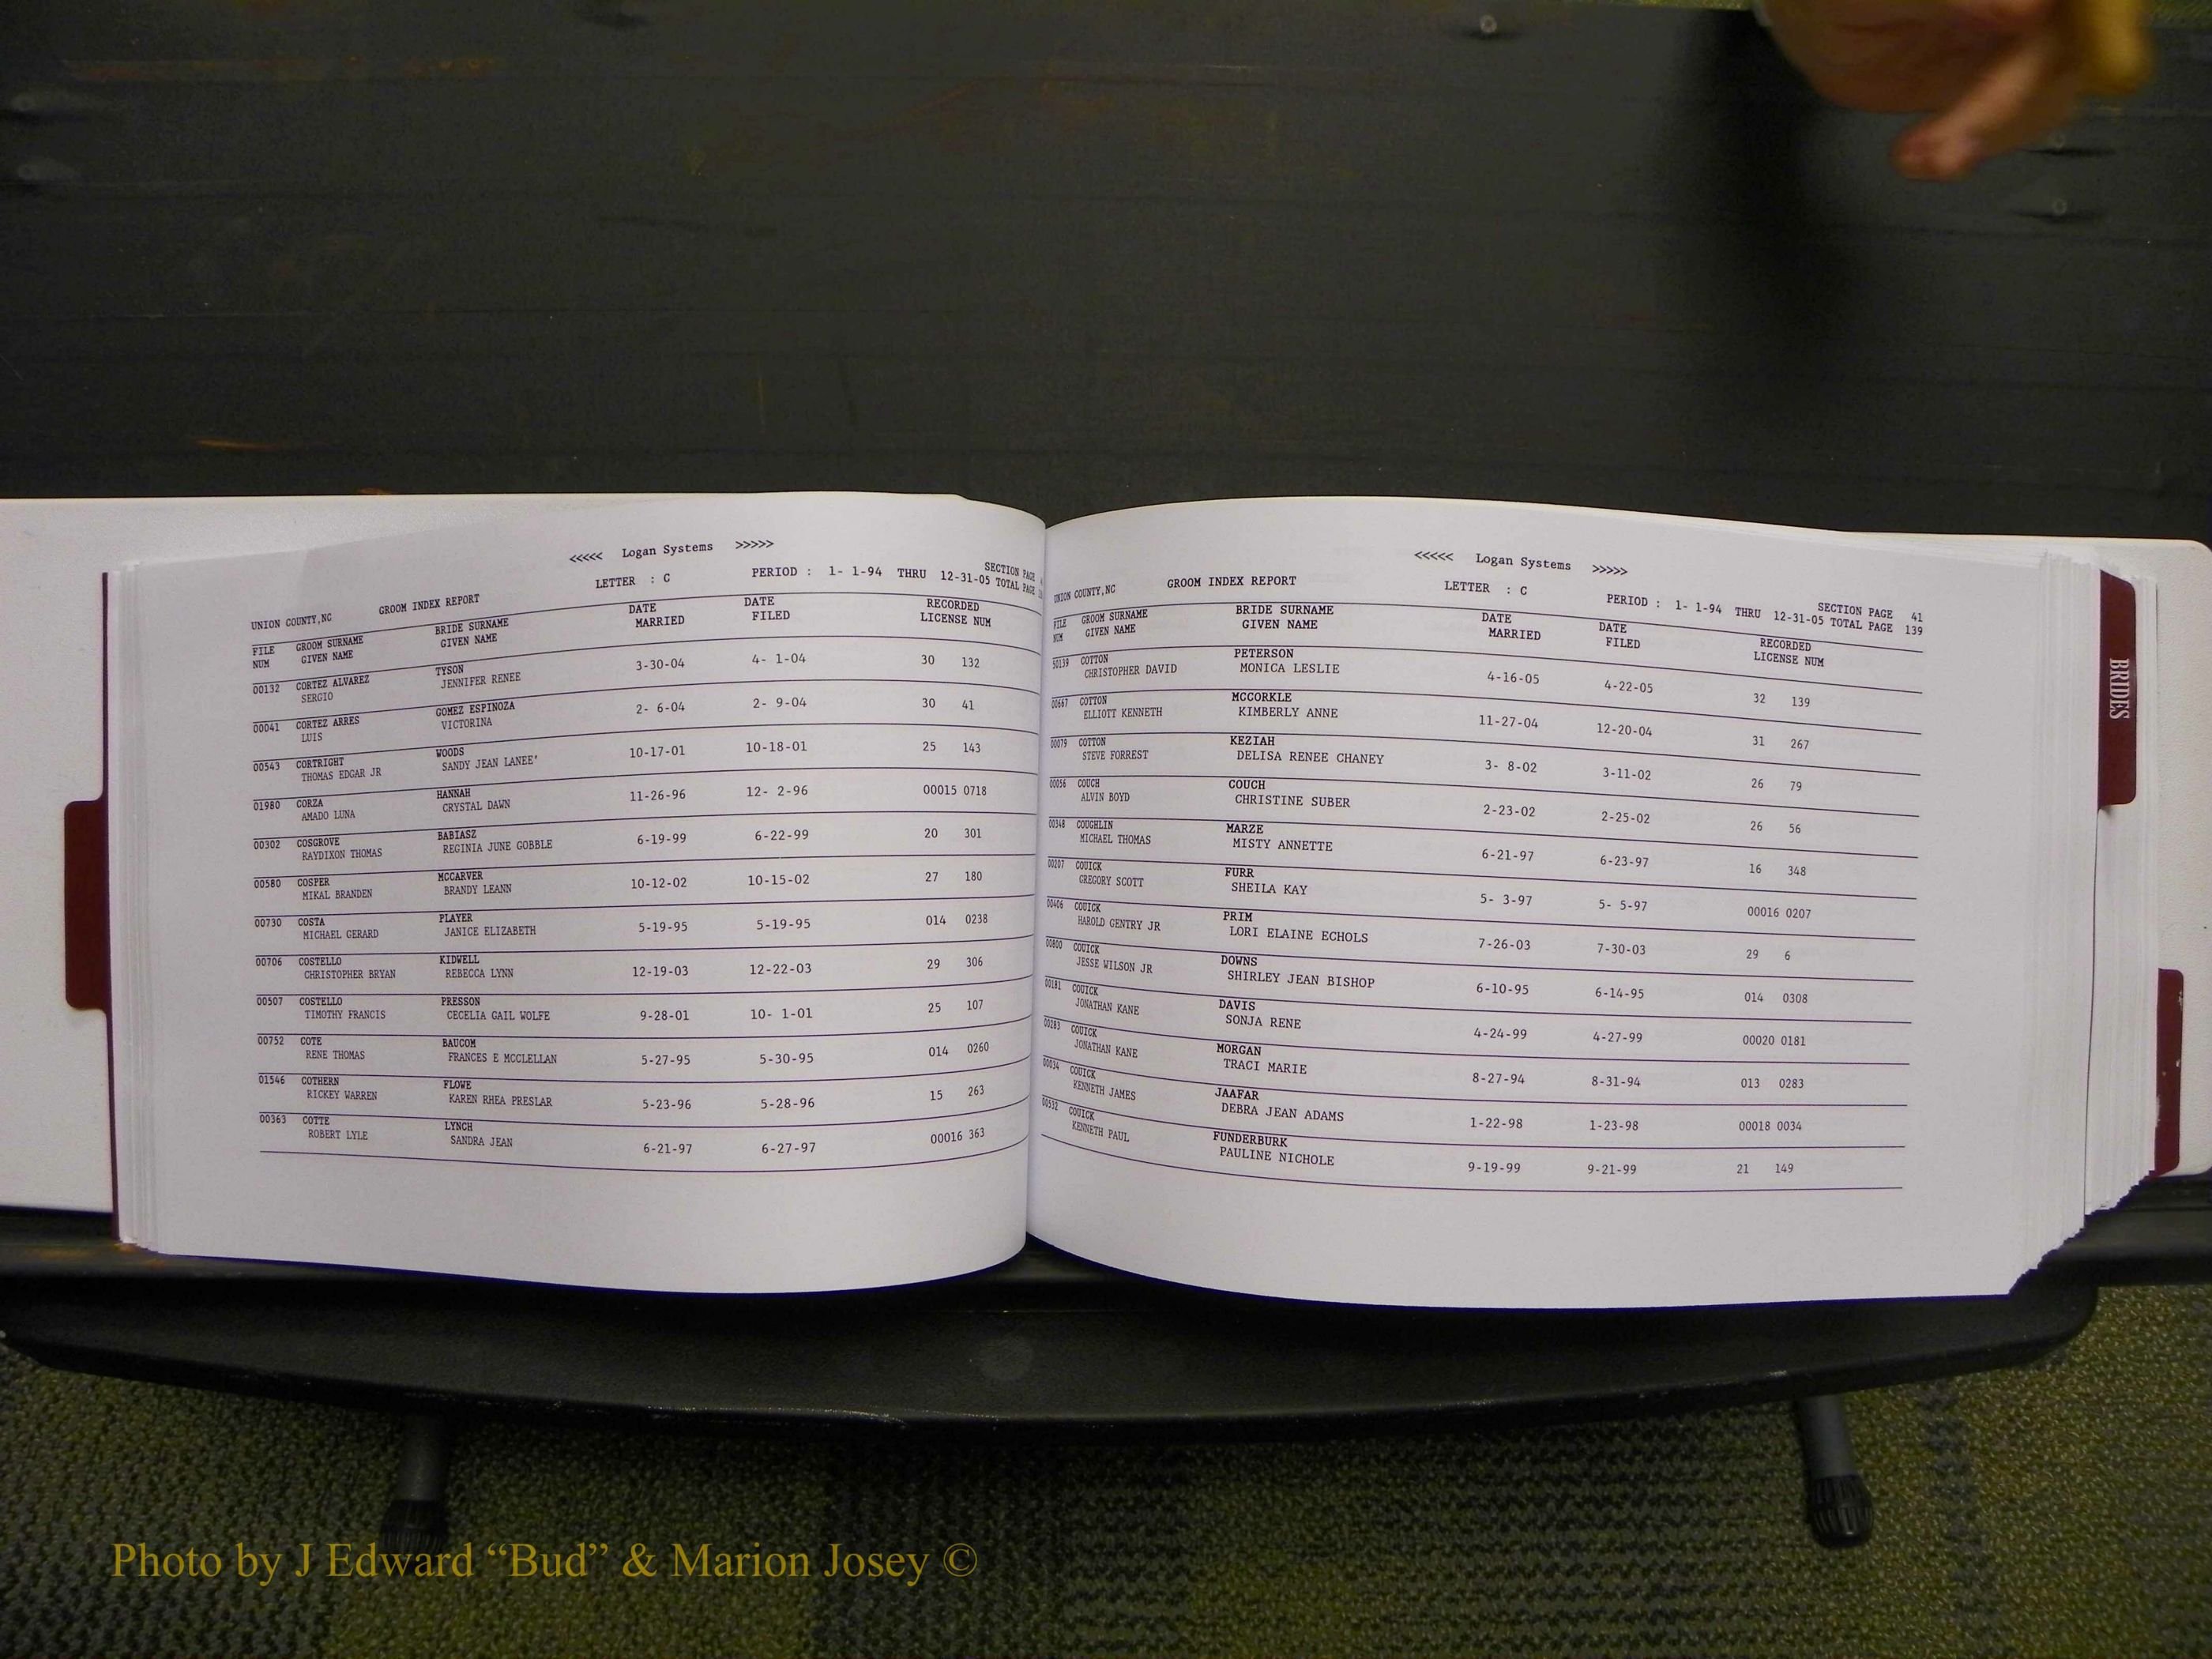 <<<<< Logan Systems >>>>>
UNION COUNTY,NC GROOM INDEX REPORT LETTER : C PERIOD : 1- 1-94 THRU 12-31-05 SECTION PAGE
TOTAL PAGE
FILE GROOM SURNAME BRIDE SURNAME DATE DATE RECORDED
NUM GIVEN NAME GIVEN NAME MARRIED FILED LICENSE NUM
00132 CORTEZ ALVAREZ TYSON 3-30-04 4- 1-04 30 132
SERGIO JENNIFER RENEE
00041 CORTEZ ARRES GOMEZ ESPINOZA 2- 6-04 2- 9-04 30 41
LUIS VICTORINA
00543 CORTRIGHT WOODS 10-17-01 10-18-01 25 143
THOMAS EDGAR JR SANDY JEAN LANEE'
01980 CORZA HANNAH 11-26-96 12- 2-96 00015 0718
AMADO LUNA CRYSTAL DAWN
00302 COSGROVE BABIASZ 6-19-99 6-22-99 20 301
RAYDIXON THOMAS REGINIA JUNE GOBBLE
00580 COSPER MCCARVER 10-12-02 10-15-02 27 180
MIKAL BRANDEN BRANDY LEANN
00730 COSTA PLAYER 5-19-95 5-19-95 014 0238
MICHAEL GERARD JANICE ELIZABETH
00706 COSTELLO KIDWELL 12-19-03 12-22-03 29 306
CHRISTOPHER BRYAN REBECCA LYNN
00507 COSTELLO PRESSON 9-28-01 10- 1-01 25 107
TIMOTHY FRANCIS CECELIA GAIL WOLFE
00752 COTE BAUCOM 5-27-95 5-30-95 014 0260
RENE THOMAS FRANCES E MCCLELLAN
01546 COTHERN FLOWE 5-23-96 5-28-96 15 263
RICKEY WARREN KAREN RHEA PRESLAR
00363 COTTE LYNCH 6-21-97 6-27-97 00016 363
ROBERT LYLE SANDRA JEAN
<<<<< Logan Systems >>>>>
UNION COUNTY,NC GROOM INDEX REPORT LETTER : C PERIOD : 1- 1-94 THRU 12-31-05 SECTION PAGE 41
TOTAL PAGE 139
FILE GROOM SURNAME BRIDE SURNAME DATE DATE RECORDED
NUM GIVEN NAME GIVEN NAME MARRIED FILED LICENSE NUM
50139 COTTON PETERSON 4-16-05 4-22-05 32 139
CHRISTOPHER DAVID MONICA LESLIE
00667 COTTON MCCORKLE 11-27-04 12-20-04 31 267
ELLIOTT KENNETH KIMBERLY ANNE
00079 COTTON KEZIAH 3- 8-02 3-11-02 26 79
STEVE FORREST DELISA RENEE CHANEY
00056 COUCH COUCH 2-23-02 2-25-02 26 56
ALVIN BOYD CHRISTINE SUBER
00348 COUGHLIN MARZE 6-21-97 6-23-97 16 348
MICHAEL THOMAS MISTY ANNETTE
00207 COUICK FURR 5- 3-97 5- 5-97 00016 0207
GREGORY SCOTT SHEILA KAY
00406 COUICK PRIM 7-26-03 7-30-03 29 6
HAROLD GENTRY JR LORI ELAINE ECHOLS
00800 COUICK DOWNS 6-10-95 6-14-95 014 0308
JESSE WILSON JR SHIRLEY JEAN BISHOP
00181 COUICK DAVIS 4-24-99 4-27-99 00020 0181
JONATHAN KANE SONJA RENE
00283 COUICK MORGAN 8-27-94 8-31-94 013 0283
JONATHAN KANE TRACI MARIE
00034 COUICK JAAFAR 1-22-98 1-23-98 00018 0034
KENNETH JAMES DEBRA JEAN ADAMS
00532 COUICK FUNDERBURK 9-19-99 9-21-99 21 149
KENNETH PAUL PAULINE NICHOLE
BRIDES
Photo by J Edward “Bud” & Marion Josey ©